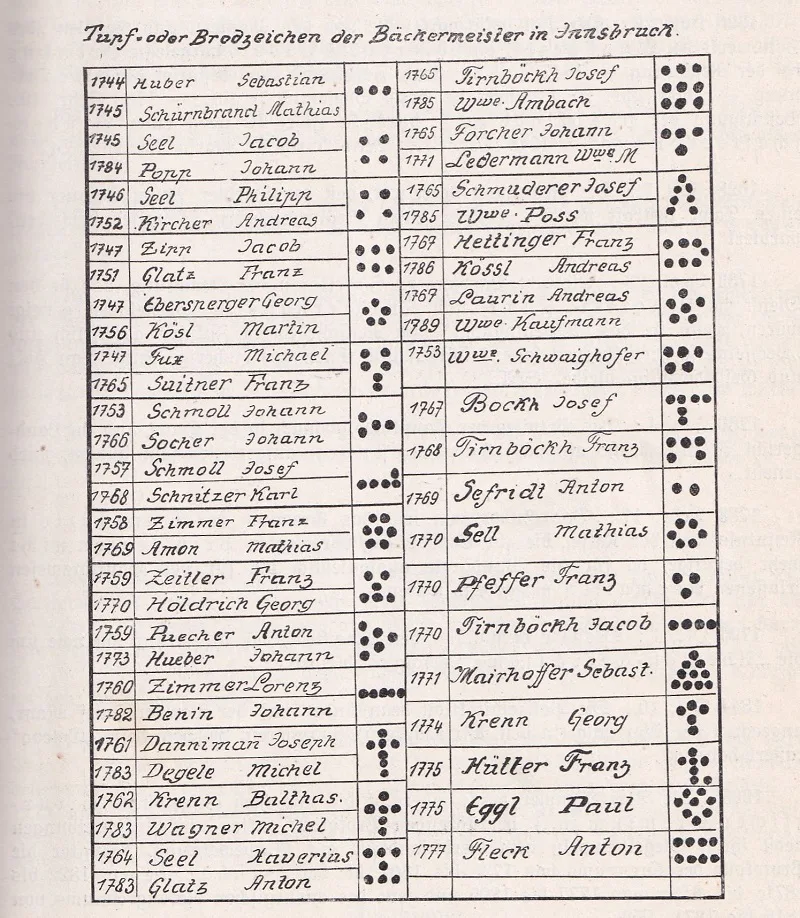 Tupf- oder Brodzeichen der Bäckermeister in Innsbruck.
1744 Huber Sebastian
1745 Schürnbrand Mathias
1745 Seel Jacob
1784 Popp Johann
1746 Seel Philipp
1752 Kircher Andreas
1747 Zipp Jacob
1751 Glatz Franz
1747 Ebersperger Georg
1756 Kösl Martin
1747 Fux Michael
1765 Suitner Franz
1753 Schmoll Johann
1766 Socher Johann
1757 Schmoll Josef
1768 Schnitzer Karl
1758 Zimmer Franz
1769 Amon Mathias
1759 Zeitler Franz
1770 Höldrich Georg
1759 Puecher Anton
1773 Hueber Johann
1760 Zimmer Lorenz
1782 Benin Johann
1761 Danniman̄ Joseph
1783 Degele Michel
1762 Krenn Balthas.
1783 Wagner Michel
1764 Seel Xaverius
1783 Glatz Anton
1765 Tirnböckh Josef
1785 Wwe. Ambach
1765 Forcher Johann
1771 Ledermann Wwe. M
1765 Schmuderer Josef
1785 Wwe. Poss
1767 Hettinger Franz
1786 Kössl Andreas
1767 Laurin Andreas
1789 Wwe. Kaufmann
1753 Wwe. Schwaighofer
1767 Bockh Josef
1768 Tirnböckh Franz
1769 Sefridt Anton
1770 Sell Mathias
1770 Pfeffer Franz
1770 Tirnböckh Jacob
1771 Mairhoffer Sebast.
1774 Krenn Georg
1775 Hütter Franz
1775 Eggl Paul
1777 Fleck Anton